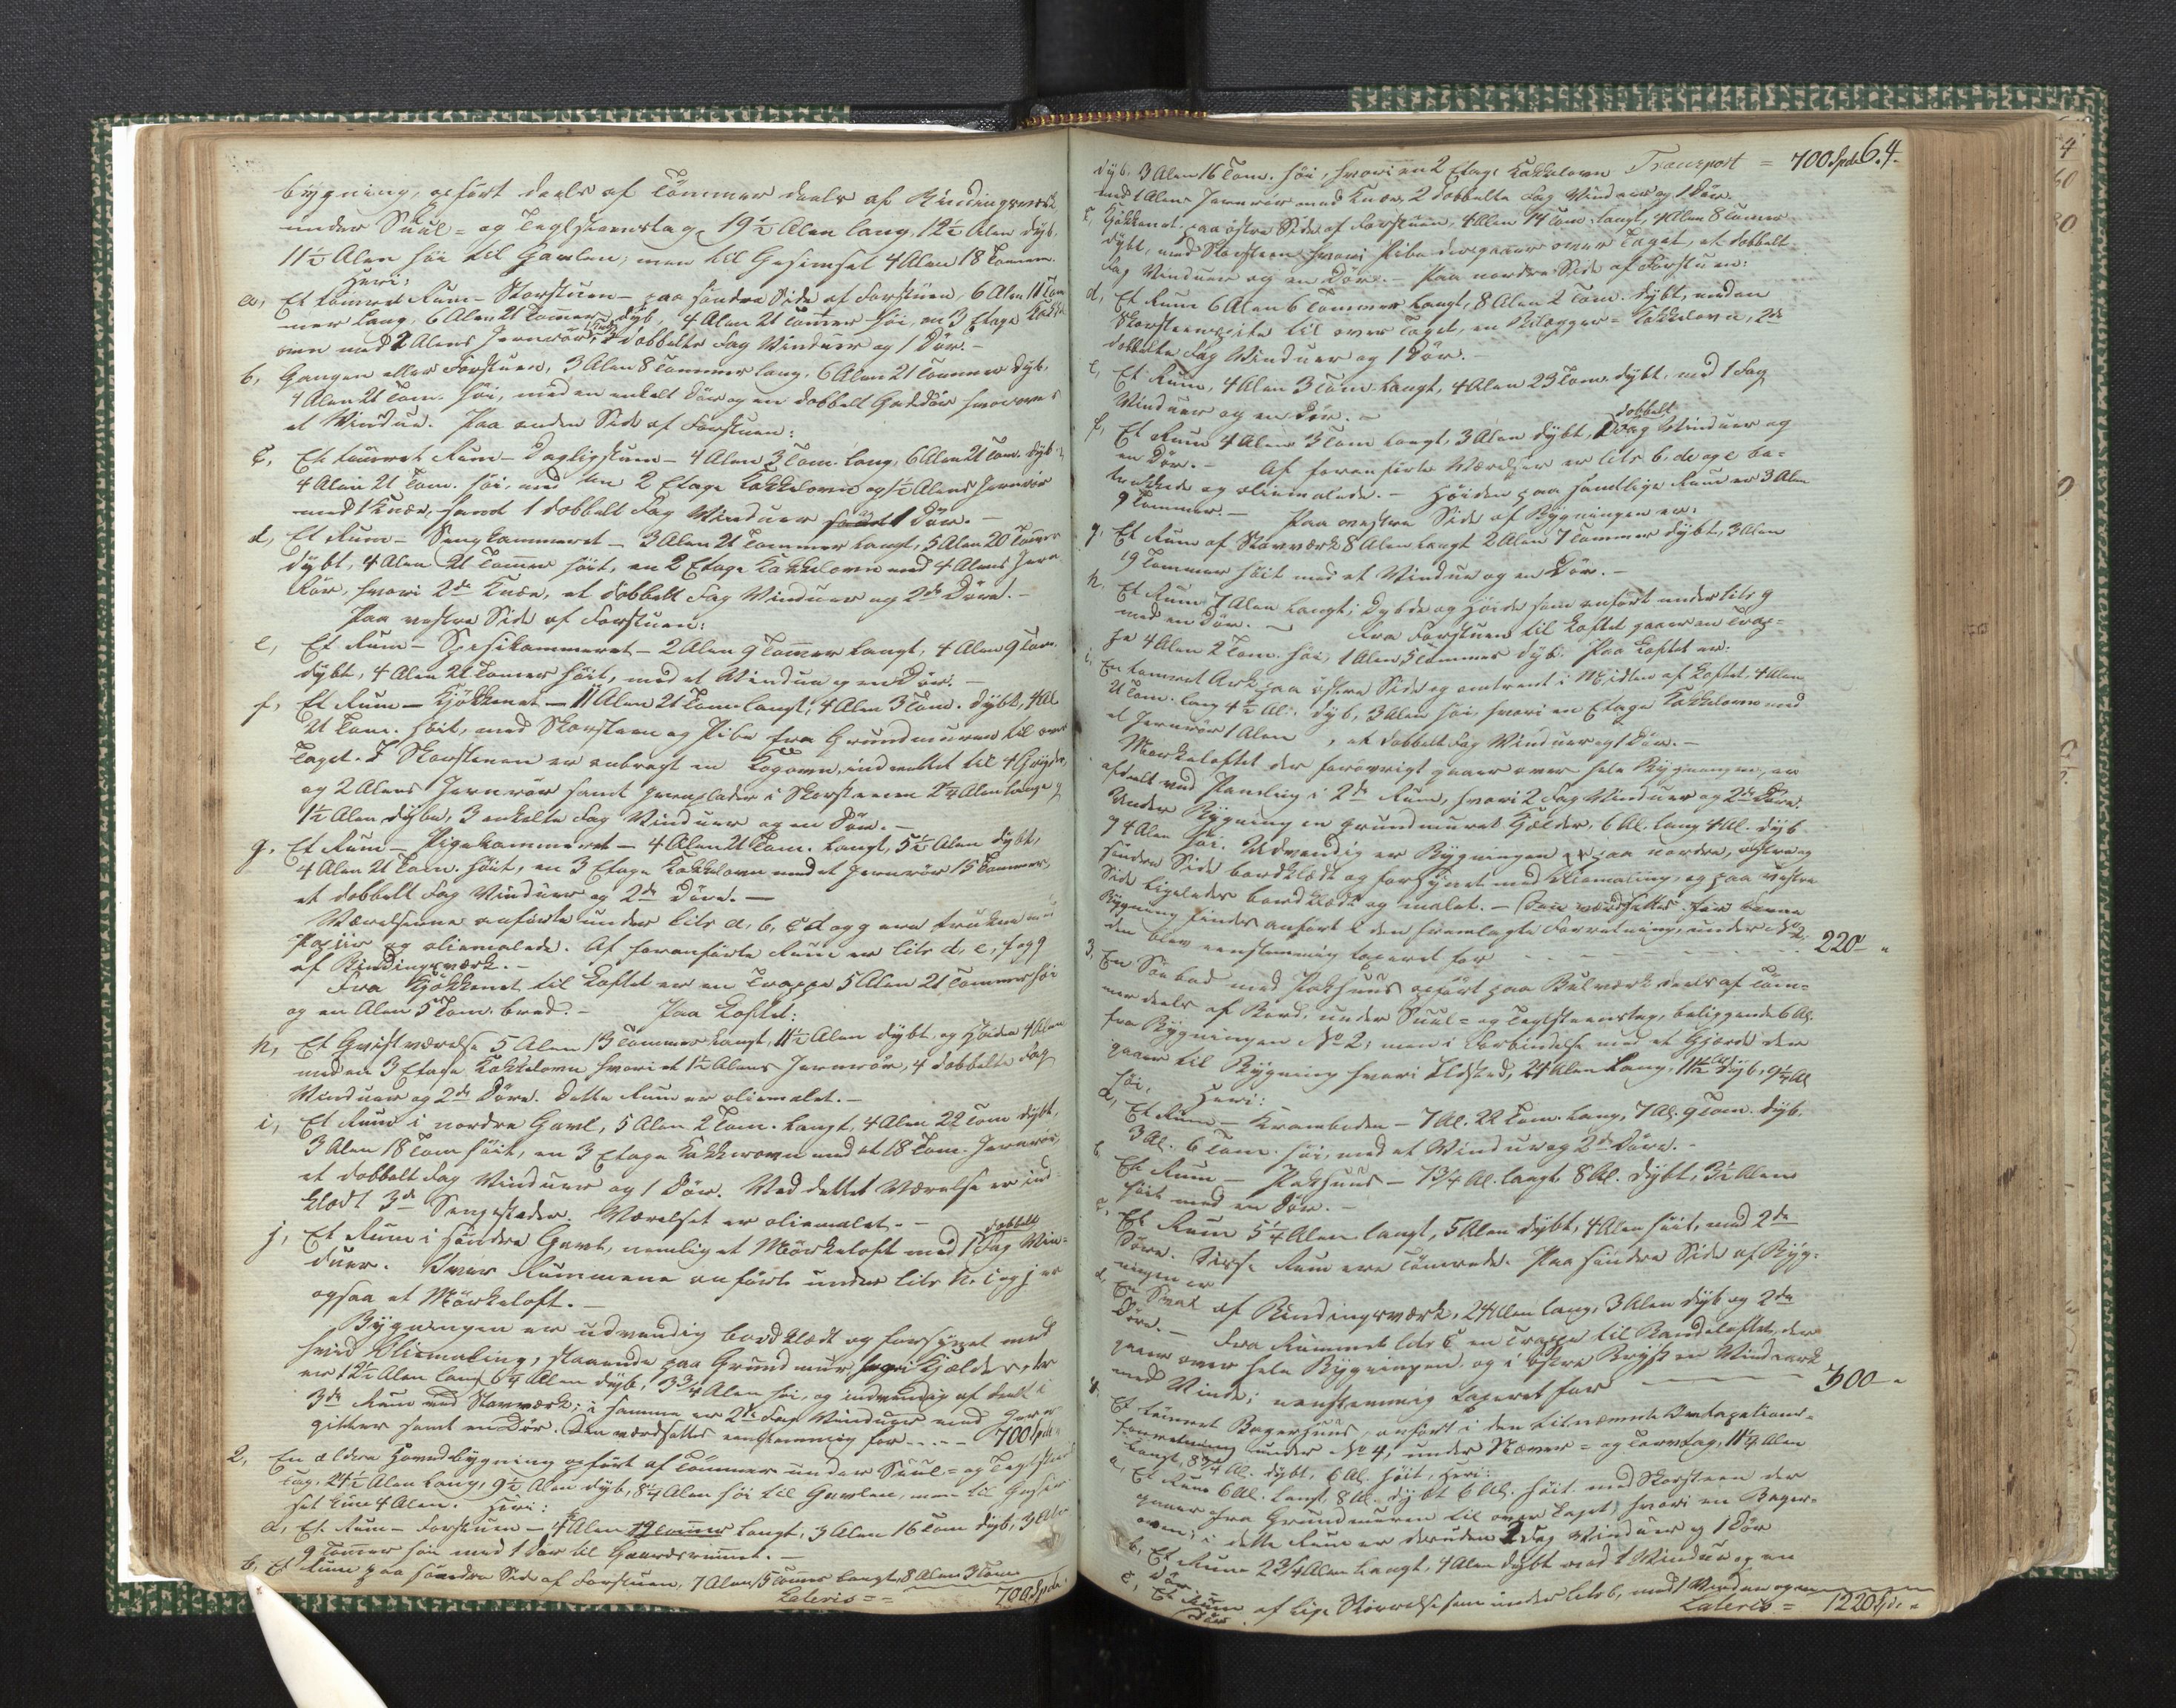 bygning, opført deels af Tømmer deels af Bindingsværk,
under Suul- og Teglsteenstag, 19½ Alen lang, 12½ Alen dyb,
11½ Alen høi til Gavlen, men til Gesimset 4 Alen 18 Tommer.
Heri:
a, Et tømret Rum - Storstuen - paa søndre Side af Forstuen, 6 Alen 11 Tom-
mer lang, 6 Alen 21 Tommer dyb, 4 Alen 21 Tommer høi, en 3 Etage Kakkel-
ovn med 2 Alens Jernrør, dobbelte Fag Vinduer og 1 Dør. -
b, Gangen eller Forstuen, 3 Alen 8 Tommer lang, 6 Alen 21 Tommer dyb,
4 Alen 21 Tom. høi, med en enkelt Dør og en dobbelt Gadedør hvorover
et Vindue. Paa anden Side af Forstuen:
c, Et tømret Rum - Dagligstuen - 4 Alen 3 Tom. lang, 6 Alen 21 Tom. dyb
4 Alen 21 Tom. høi, med en 2 Etage Kakkelovn og ½ Alens Jernrør
med 1 Knæ, samt 1 dobbelt Fag Vinduer 1 Dør. -
d, Et Rum - Sengkammeret - 3 Alen 21 Tommer langt, 5 Alen 20 Tommer
dybt, 4 Alen 21 Tommer høit, en 2 Etage Kakkelovn med 4 Alens Jern
Rør, hvori 2de Knæe, et dobbelt Fag Vinduer og 2de Døre. -
Paa vestre Side af Forstuen:
e, Et Rum - Spisekammeret - 2 Alen 9 Tommer langt, 4 Alen 9 Tom.
dybt, 4 Alen 21 Tommer høit, med et Vindue og en Dør. -
f, Et Rum - Kjøkkenet - 11 Alen 21 Tom. langt, 4 Alen 3 Tom. dybt, 4 Al
21 Tom. høit, med Skorsteen og Pibe fra Grundmuren til over
Taget. I Skorstenen er anbragt en Kogovn, indrettet til 4 Gryder,
og 2 Alens Jernrør samt Jernplader i Skorstenen 2¼ Alen lange og
1½ Alen dybe, 3 enkelte Fag Vinduer og en Dør. -
g. Et Rum - Pigekammeret - 4 Alen 21 Tom. langt, 5½ Alen dybt,
4 Alen 21 Tom. høit, en 3 Etage Kakkelovn med et Jernrør 15 Tommer,
et dobbelt Fag Vinduer og 2de Døre. -
Værelserne anførte under litr a, b, c d og g ere trukne med
Papiir og oliemalede. Af foranførte Rum er litr d, e, f og g
af Bindingsværk. -
Fra Kjøkkenet til Loftet er en Trappe 5 Alen 21 Tommer høi
og en Alen 5 Tom. bred. - Paa Loftet:
h, Et Gvistværelse 5 Alen 13 Tommer langt, 11½ Alen dybt, og Høiden 4 Alen
med en 3 Etage Kakkelovn hvori et 1½ Alens Jernrør, 4 dobbelte Fag
Vinduer og 2de Døre. Dette Rum er oliemalet. -
i, Et Rum i nordre Gavl, 5 Alen 2 Tom. langt, 4 Alen 22 Tom dybt,
3 Alen 18 Tom høit, en 3 Etage Kakkelovn med et 18 Tom. Jernrør,
et dobbelt Fag Vinduer og 1 Dør. Ved dette Værelse er ind-
klædt 3de Sengesteder. Værelset er oliemalet. -
j, Et Rum i søndre Gavl, nemlig et Mørkeloft med 1 dobbelt Fag Vin-
duer. Over Rummene anførte under litr h. i og j er
ogsaa et Mørkeloft. -
Bygningen er udvendig bordklædt og forsynet med
hvid Oliemaling, staaende paa Grundmur hvori Kjælder, der
er 12½ Alen lang 6¼ Alen dyb, 3¾ Alen høi, og indvendig afdeelt i
3de Rum med Stavværk; i samme er 2de Fag Vinduer med Jern-
gitter samt en Dør. Den værdsattes eenstemmig for - - - - 700 Spd
2, En ældre Hovedbygning opført af Tømmer under Suul- og Teglsteens
tag, 24½ Alen lang, 9½ Alen dyb, 8¼ Alen høi til Gavlen, men til Gesim-
set kun 4 Alen. Heri:
a, Et Rum - Forstuen - 4 Alen langt, 3 Alen 16 Tom dyb, 3 Alen
9 Tommer høi med 1 Dør til Gaardsrummet. -
b, Et Rum paa søndre Side af Forstuen, 7 Alen 5 Tommer langt, 8 Alen 3 Tom
Lateris = = 700 Spd.
64.
dyb, 3 Alen 16 Tom. høi, hvori en 2 Etage Kakkelovn Transport = 700 Spd
med 1 Alens Jernrør med Knæ, 2 dobbelte Fag Vinduer og 1 Dør.
c, Kjøkkenet, paa østre Side af Forstuen, 4 Alen 14 Tom. langt, 4 Alen 8 Tommer
dybt, med Skorsteen hvori Pibe der gaaer over Taget, et dobbelt
Fag Vinduer og en Dør. - Paa nordre Side af Forstuen:
d, Et Rum 6 Alen 6 Tommer langt, 8 Alen 2 Tom. dybt, med en
Skorsteenspibe til over Taget, en Bilægger-Kakkelovn, 2de
dobbelte Fag Vinduer og 1 Dør. -
e, Et Rum, 4 Alen 3 Tom. langt, 4 Alen 23 Tom. dybt, med 1 Fag
Vinduer og en Dør. -
f, Et Rum 4 Alen 3 Tom langt, 3 Alen dybt, 1 dobbelt Fag Vinduer og
en Dør. - Af foranførte Værelser er litr b. d og e be-
trukkede og oliemalede. - Høiden paa samtlige Rum er 3 Alen
9 Tommer. - Paa vestre Side af Bygningen er:
g, Et Rum af Stavværk 8 Alen langt 2 Alen 7 Tommer dybt, 3 Alen
19 Tommer høit med et Vindue og en Dør. -
h, Et Rum 7 Alen langt; Dybde og Høide som anført under litr g
med en Dør. - Fra Forstuen til Loftet gaaer en Trap-
pe 4 Alen 2 Tom. høi, 1 Alen 5 Tommer dyb. Paa Loftet er:
i, En tømret Ark paa østre Side og omtrent i Midten af Loftet, 4 Alen
21 Tom. lang 4½ Al. dyb, 3 Alen høi, hvori en Etage Kakkelovn med
et Jernrør 1 Alen, et dobbelt Fag Vinduer og 1 Dør. -
Mørkeloftet der forøvrigt gaaer over hele Bygningen, er
afdeelt ved Paneling i 2de Rum, hvori 2 Fag Vinduer og 2de Døre.
Under Bygning en grundmuret Kjelder, 6 Al. lang 4 Al. dyb
og 4 Alen høi. Udvendig er Bygningen paa nordre, østre og
søndre Side bordklædt og forsynet med Oliemaling, og paa vestre
Side ligeledes bordklædt og malet. - 
Bygning findes anført i den fremlagte Forretning, under No 2,
den blev eenstemmig taxeret for - - - - - 220 - "
3, En Søebod med Pakhuus opført paa Bulværk deels af Tøm-
mer deels af Bord, under Suul- og Teglsteenstag, beliggende 6 Al.
fra Bygningen No 2; men i Forbindelse med et Gjærde der
gaaer til Bygning hvori Ildsted, 24 Alen lang, 11½ Al dyb, 9¼ Al
høi. Heri:
a, Et Rum - Kramboden - 7 Al. 22 Tom. lang, 7 Al. 9 Tom. dyb.
3 Al. 6 Tom. høi, med et Vindue og 2de Døre. -
b, Et Rum - Pakhuus - 7¾ Al. langt 8 Al. dybt, 3½ Alen
høit med en Dør. -
c, Et Rum 5¼ Alen langt, 5 Alen dybt, 4 Alen høit, med 2de
Døre. Disse Rum ere tømrede. Paa søndre Side af Byg-
ningen er
d, En Sval af Bindingsværk, 24 Alen lang, 3 Alen dyb og 2de
Døre. - Fra Rummet litr c en Trappe til Bandeloftet, der
gaaer over hele Bygningen, og i østre Bryst en Vindeark
med Vinde; eenstemmig taxeret for - - - 300 - "
4, Et tømret Bagerhuus, anført i den bemeldte Omtaxations-
forretning under No 4, under Næver- og Torvtag, 11¼ Alen
langt, 8¾ Al. dybt, 6 Al. høit, Heri:
a, Et Rum 6 Al. langt, 8 Al. dybt 6 Al. høit med Skorsteen der
gaaer fra Grundmuren til over Taget, hvori en Bager-
ovn; i dette Rum er desuden 2 Fag Vinduer og 1 Dør
b, Et Rum 2¾ Alen langt, 4 Alen dybt med 1 Vindue og en
Dør.
c, Et Rum af lige Størrelse som under litr b, med 1 Vindue og en
Dør. Lateris = 1220 Spd. "